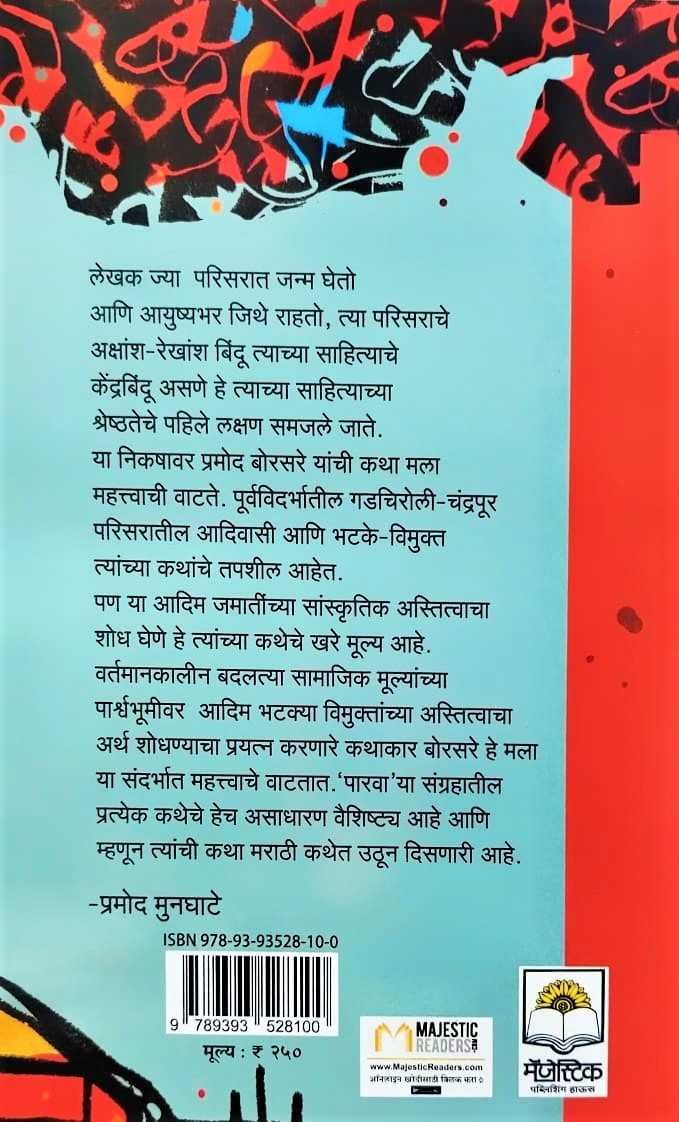 लेखक ज्या परिसरात जन्म घेतो
आणि आयुष्यभर जिथे राहतो, त्या परिसराचे
अक्षांश-रेखांश बिंदू त्याच्या साहित्याचे
केंद्रबिंदू असणे हे त्याच्या साहित्याच्या
श्रेष्ठतेचे पहिले लक्षण समजले जाते.
या निकषावर प्रमोद बोरसरे यांची कथा मला
महत्त्वाची वाटते. पूर्वविदर्भातील गडचिरोली-चंद्रपूर
परिसरातील आदिवासी आणि भटके-विमुक्त
त्यांच्या कथांचे तपशील आहेत.
पण या आदिम जमातींच्या सांस्कृतिक अस्तित्वाचा
शोध घेणे हे त्यांच्या कथेचे खरे मूल्य आहे.
वर्तमानकालीन बदलत्या सामाजिक मूल्यांच्या
पार्श्वभूमीवर आदिम भटक्या विमुक्तांच्या अस्तित्वाचा
अर्थ शोधण्याचा प्रयत्न करणारे कथाकार बोरसरे हे मला
या संदर्भात महत्त्वाचे वाटतात.‘पारवा’या संग्रहातील
प्रत्येक कथेचे हेच असाधारण वैशिष्ट्य आहे आणि
म्हणून त्यांची कथा मराठी कथेत उठून दिसणारी आहे.
-प्रमोद मुनघाटे
ISBN 978-93-93528-10-0
9 789393 528100
मूल्य : ₹ २५०
MAJESTIC
READERS
www.MajesticReaders.com
ऑनलाइन खरेदीसाठी क्लिक करा
मॅजेस्टिक
पब्लिशिंग हाऊस